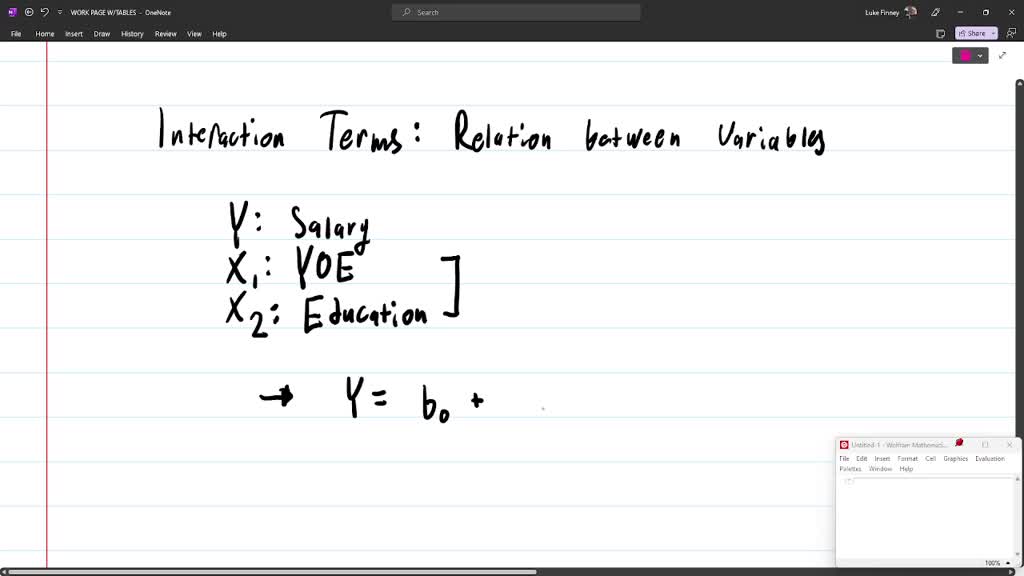 WORK PAGE W/TABLES - OneNote
Search
Luke Finney
File Home Insert Draw History Review View Help
Share
Interaction Terms: Relation between Variables
Y: Salary
X1: YOE
X2: Education
→ Y = b0 +
Untitled-1 - Wolfram Mathemati...
File Edit Insert Format Cell Graphics Evaluation
Palettes Window Help
100%